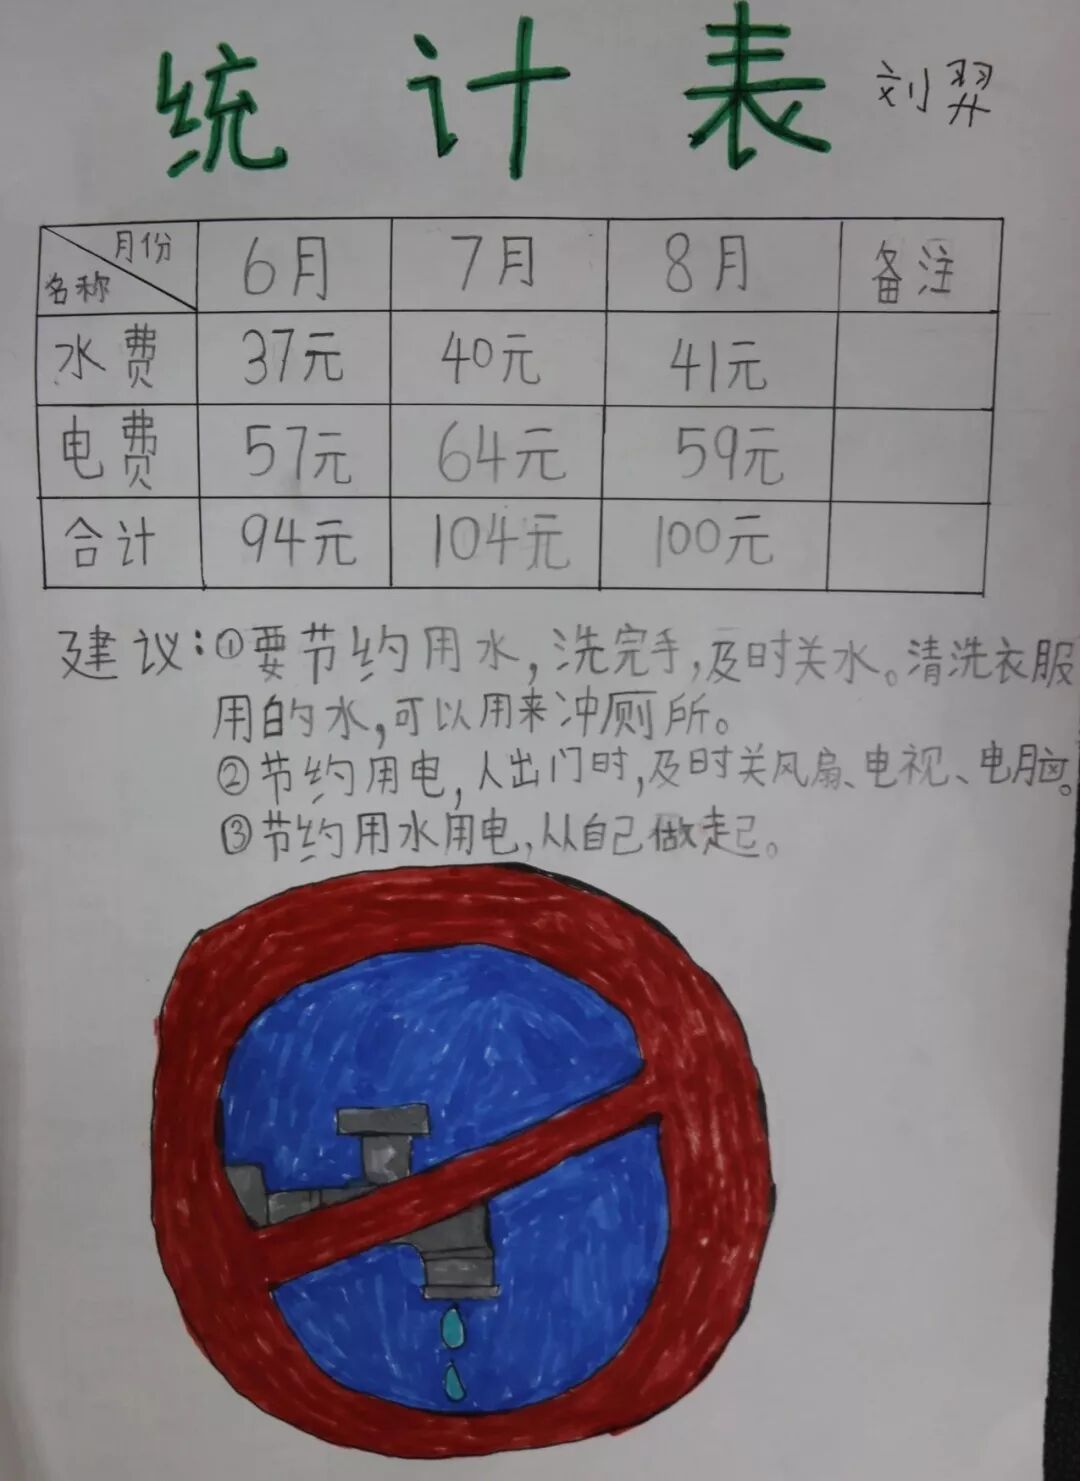 统计表 刘羿
月份 名称 6月 7月 8月 备注
水费 37元 40元 41元
电费 57元 64元 59元
合计 94元 104元 100元
建议:①要节约用水,洗完手,及时关水。清洗衣服
用的水,可以用来冲厕所。
②节约用电,人出门时,及时关风扇、电视、电脑。
③节约用水用电,从自己做起。